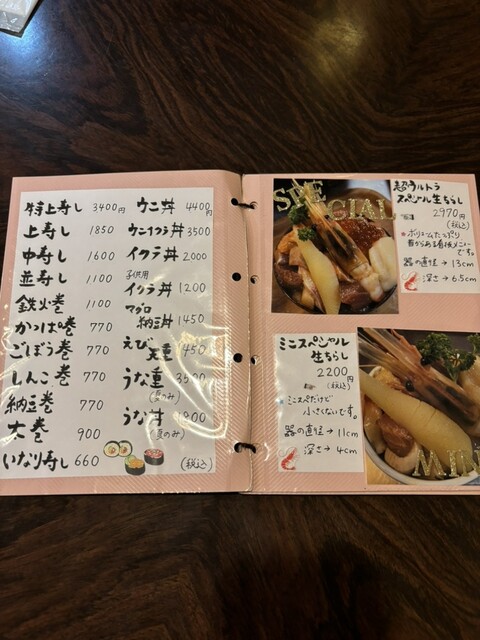 特上寿し 3400円
上寿し 1850
中寿し 1600
並寿し 1100
鉄火巻 1100
かっぱ巻 770
ごぼう巻 770
しんこ巻 770
納豆巻 770
太巻 900
いなり寿し 660
ウニ丼 4400円
ウニイクラ丼 3500
イクラ丼 2000
子供用
イクラ丼 1200
マグロ
納豆丼 1450
えび天重
うな重
(夏のみ)
うな丼
(夏のみ)
(税込)
SPE
CIAL
超ウルトラ
スペシャル生ちらし
2970円
(税込)
ボリュームたっぷり
昔からある看板メニュー
です。
器の直径→13cm
深さ→6.5cm
ミニスペシャル
生ちらし
2200円
(税込)
ミニスペだけど
小さくないです。
器の直径→11cm
深さ→4cm